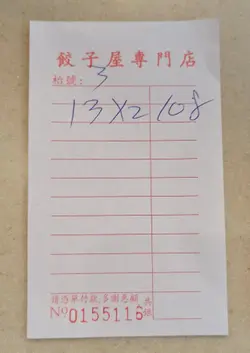 餃子屋專門店
枱號: 3
13X2 108
請憑單付款,多謝惠顧 共銀
№ 0155116